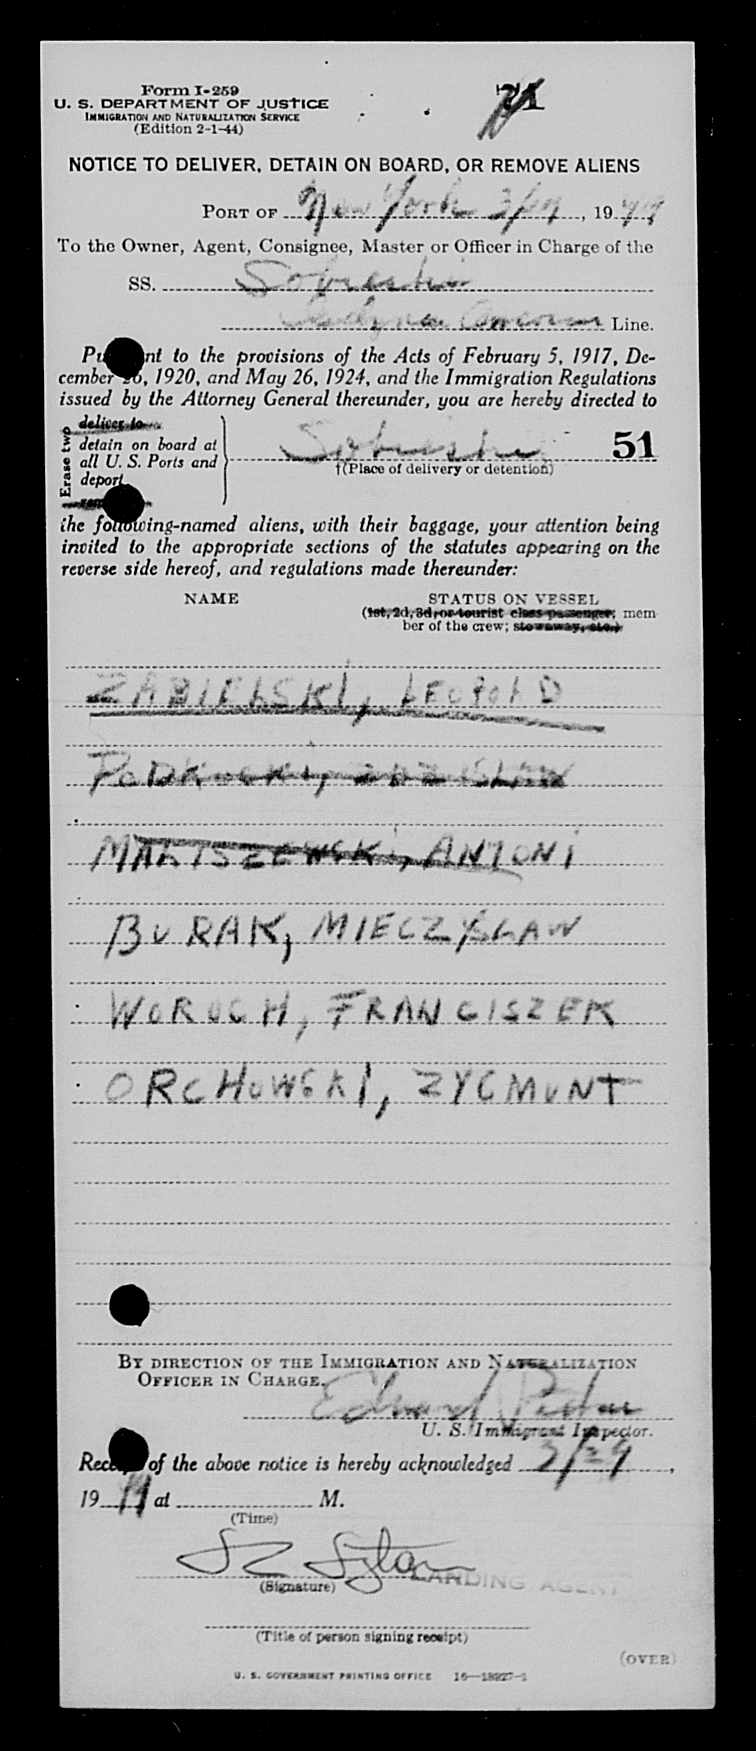 Form I-259
U. S. DEPARTMENT OF JUSTICE
IMMIGRATION AND NATURALIZATION SERVICE
(Edition 2-1-44)
NOTICE TO DELIVER, DETAIN ON BOARD, OR REMOVE ALIENS
PORT OF New York 3/29, 1949
To the Owner, Agent, Consignee, Master or Officer in Charge of the
SS. Sobieski
Gdynia American Line.
Pursuant to the provisions of the Acts of February 5, 1917, De-
cember 26, 1920, and May 26, 1924, and the Immigration Regulations
issued by the Attorney General thereunder, you are hereby directed to
Erase two
deliver to
detain on board at
all U. S. Ports and
deport
Sobieski 51
†(Place of delivery or detention)
the following-named aliens, with their baggage, your attention being
invited to the appropriate sections of the statutes appearing on the
reverse side hereof, and regulations made thereunder:
NAME STATUS ON VESSEL
(1st, 2d, 3d, or tourist class passenger; mem
ber of the crew; stowaway, etc.)
ZABIELSKI, LEOPOLD
MALISZEWSKI, ANTONI
BURAK, MIECZYSLAW
WOROCH, FRANCISZEK
ORCHOWSKI, ZYGMUNT
BY DIRECTION OF THE IMMIGRATION AND NATURALIZATION
OFFICER IN CHARGE.
Edward
U. S. Immigrant Inspector.
Receipt of the above notice is hereby acknowledged 3/29,
1949 at M.
(Time)
LANDING AGENT
(Signature)
(Title of person signing receipt)
(OVER)
U. S. GOVERNMENT PRINTING OFFICE 16—18927-1